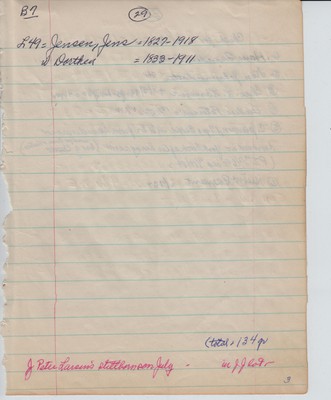 B7 29
L49 = Jensen, Jens = 1827-1918
" Dorthea = 1833-1911
(total = 134 gr
J Peter Larsen's stillborn son July.
3